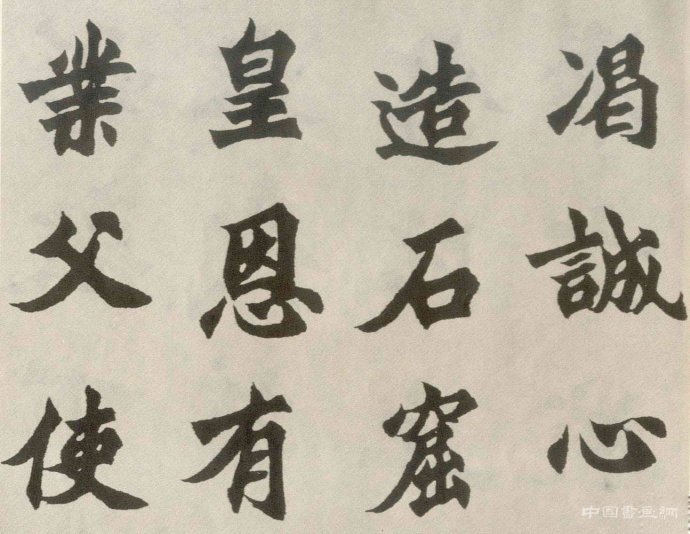 渴誠心
造石窟
皇恩有
業父使
中国書画網